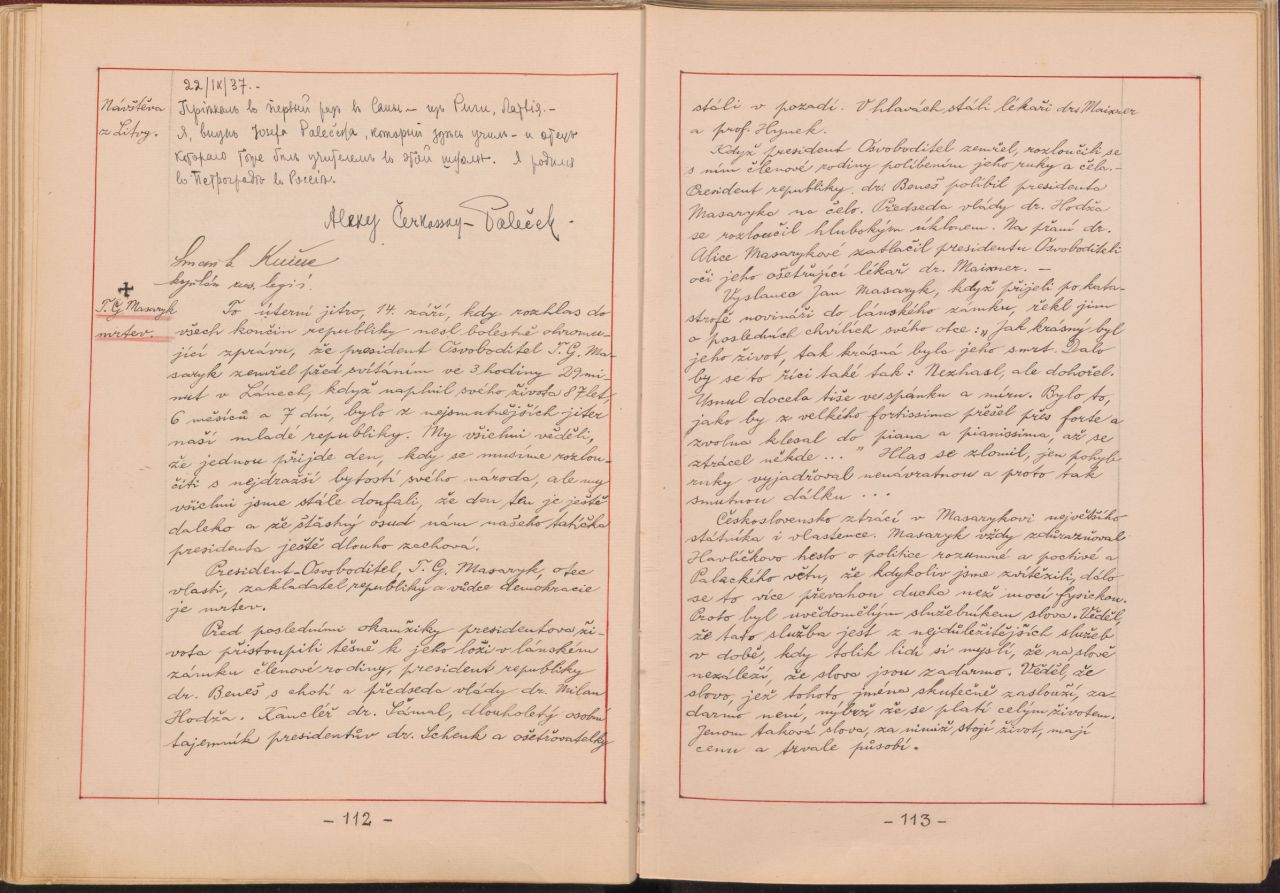 22/IX/37.-
Návštěva
z Litvy.
Пріѣхалъ въ первый разъ въ Саны — изъ Риги, Латвія. —
Я, внукъ Josefa Palečka, который здѣсь училъ - и отецъ
котораго тоже былъ учителемъ въ этой школѣ. Я родился
въ Петроградѣ въ Россіи.
Alexey Čerkassky-Paleček.
kapitán rus. legií.
T. G. Masaryk
mrtev.
To úterní jitro, 14. září, kdy rozhlas do
všech končin republiky nesl bolestně ohromu-
jící zprávu, že president Osvoboditel T. G. Ma-
saryk zemřel před svítáním ve 3 hodiny 29 mi-
nut v Lánech, když naplnil svého života 87 let,
6 měsíců a 7 dní, bylo z nejsmutnějších jiter
naší mladé republiky. My všichni věděli,
že jednou přijde den, kdy se musíme rozlou-
čiti s nejdražší bytostí svého národa, ale my
všichni jsme stále doufali, že den ten je ještě
daleko a že šťastný osud nám našeho tatíčka
presidenta ještě dlouho zachová.
President-Osvoboditel, T. G. Masaryk, otec
vlasti, zakladatel republiky a vůdce demokracie
je mrtev.
Před posledními okamžiky presidentova ži-
vota přistoupili těsně k jeho loži v lánském
zámku členové rodiny, president republiky
dr. Beneš s chotí a předseda vlády dr. Milan
Hodža. Kancléř dr. Šámal, dlouholetý osobní
tajemník presidentův dr. Schenk a ošetřovatelky
- 112 -
stáli v pozadí. V hlavách stáli lékaři drs Maixner
a prof. Hynek.
Když president Osvoboditel zemřel, rozloučili se
s ním členové rodiny políbením jeho ruky a čela. -
President republiky dr. Beneš políbil presidenta
Masaryka na čelo. Předseda vlády dr. Hodža
se rozloučil hlubokým úklonem. Na přání dr.
Alice Masarykové zatlačil presidentu Osvoboditeli
oči jeho ošetřující lékař dr. Maixner. -
Vyslanec Jan Masaryk, když přijeli po kata-
strofě novináři do lánského zámku, řekl jim
o posledních chvílích svého otce: „Jak krásný byl
jeho život, tak krásná byla jeho smrt. Dalo
by se to říci také tak: Nezhasl, ale dohořel.
Usnul docela tiše ve spánku a míru. Bylo to,
jako by z velkého fortissima přešel přes forte a
zvolna klesal do piana a pianissima, až se
ztrácel někde ... " Hlas se zlomil, jen pohyb
ruky vyjadřoval nenávratnou a proto tak
smutnou dálku ...
Československo ztrácí v Masarykovi největšího
státníka i vlastence. Masaryk vždy zdůrazňoval
Havlíčkovo heslo o politice rozumné a poctivé a
Palackého větu, že kdykoliv jsme zvítězili, dálo
se to více převahou ducha než mocí fysickou.
Proto byl uvědomělým služebníkem slova. Věděl,
že tato služba jest z nejdůležitějších služeb
v době, kdy tolik lidí si myslí, že na slově
nezáleží, že slova jsou zadarmo. Věděl, že
slovo, jež tohoto jména skutečně zaslouží, za-
darmo není, nýbrž že se platí celým životem.
Jenom taková slova, za nimiž stojí život, mají
cenu a trvale působí.
- 113 -